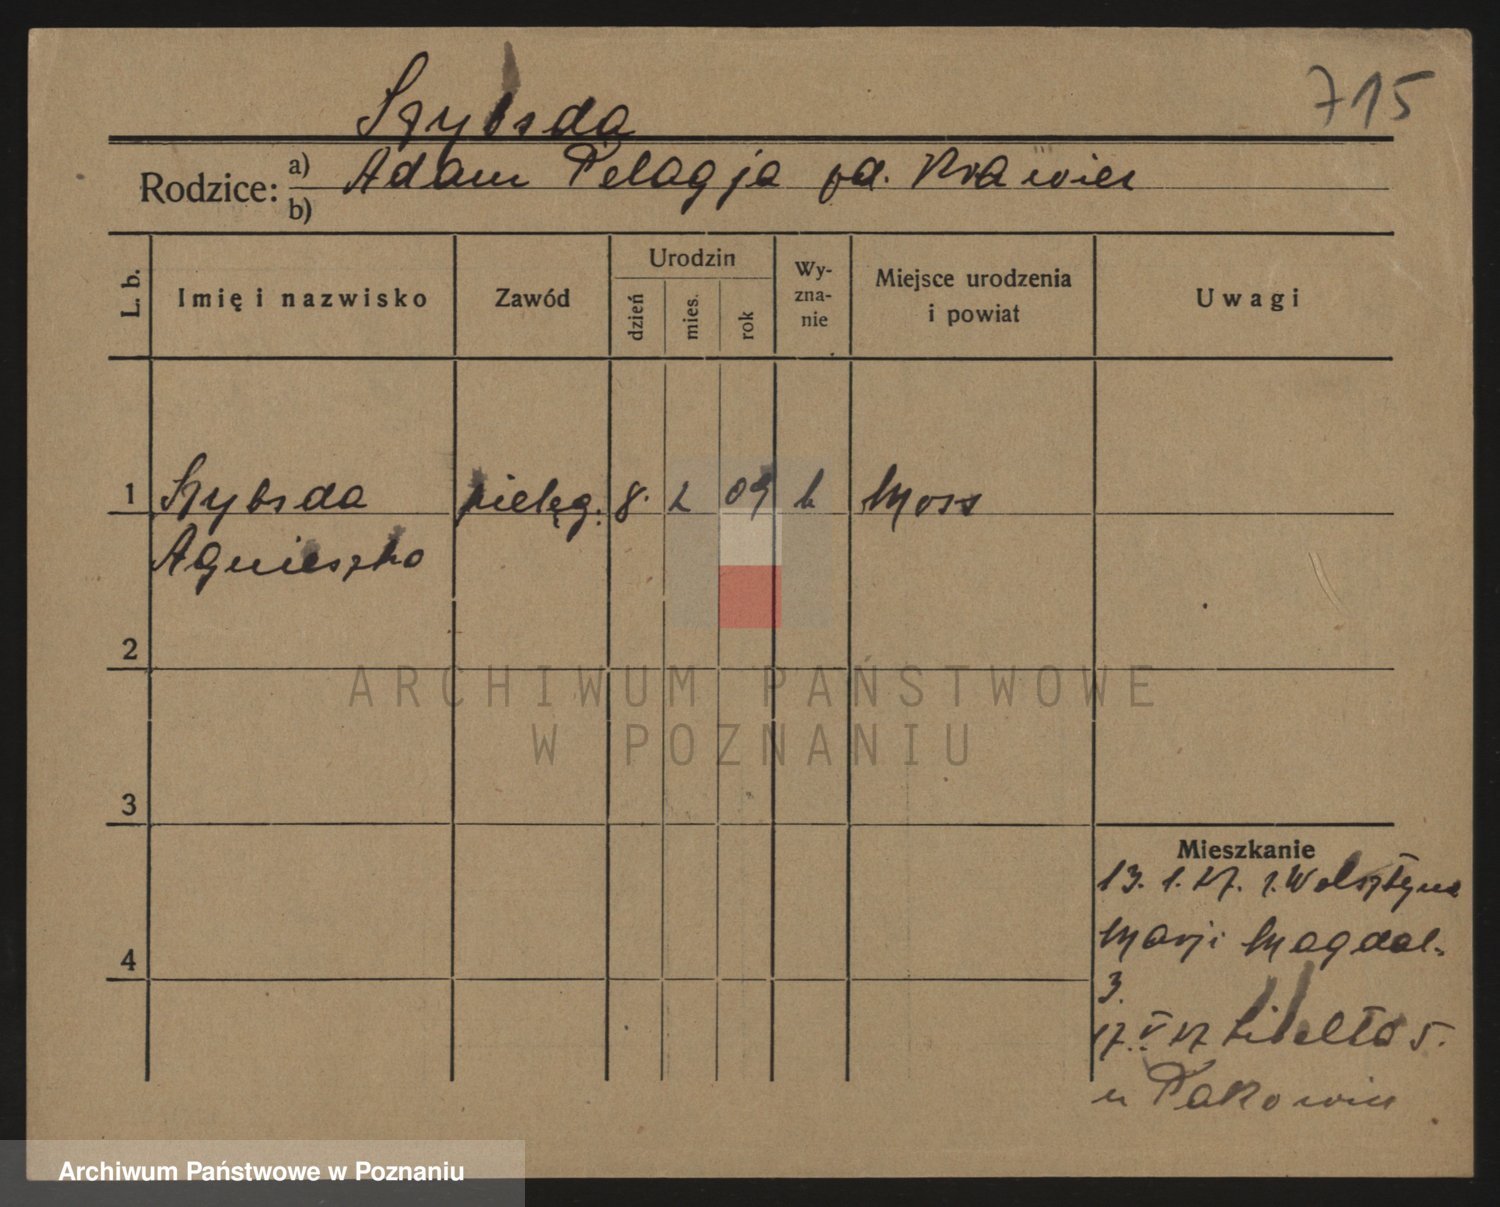 715
Szybsda
Rodzice: a) Adam Pelagja
b)
L. b.
Imię i nazwisko
Zawód
Urodzin
dzień
mies.
rok
Wy-
zna-
nie
Miejsce urodzenia
i powiat
Uwagi
1 Szybsda pielęg. 8. 2 09 k
Agnieszka
2
3
4
Mieszkanie
13. 1. 27. z Wolsztyna
Marji Magdal.
3.
17. V 27 Libelta 5.
ARCHIWUM PAŃSTWOWE
W POZNANIU
Archiwum Państwowe w Poznaniu